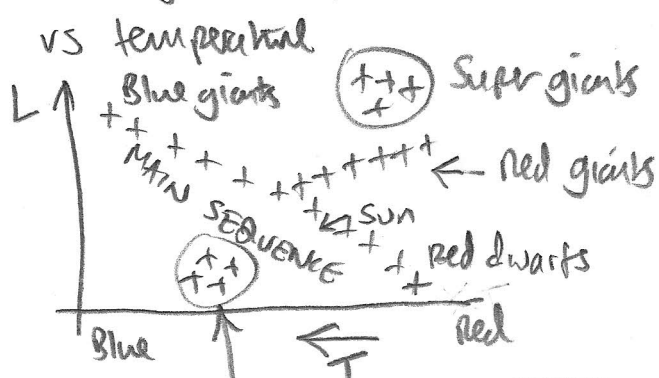 vs temperature
L
Blue giants
Super giants
Red giants
MAIN SEQUENCE
Sun
Red dwarfs
Blue
Red
T